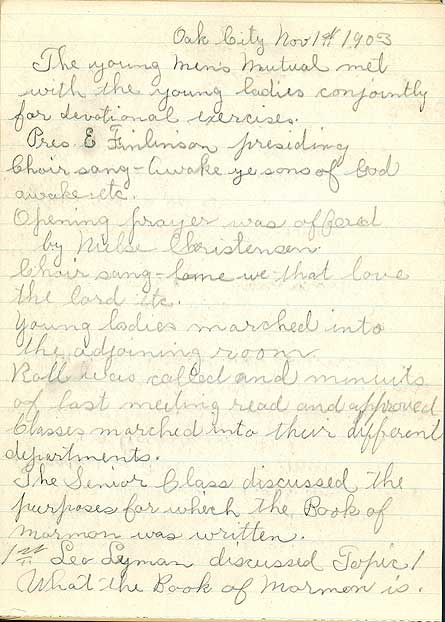 Oak City Nov 1st 1903
The young men's mutual met
with the young ladies conjointly
for devotional exercises.
Pres E Finlinson presiding
Choir sang - Awake ye sons of God
awake etc.
Opening prayer was offered
by Nielse Christensen.
Choir sang - Come we that love
the lord etc.
Young ladies marched into
the adjoining room.
Roll was called and minuits
of last meeting read and approved
Classes marched into their different
departments.
The Senior Class discussed the
purposes for which the Book of
Mormon was written.
1st Leo Lyman discussed Topic 1
What the Book of Mormon is.